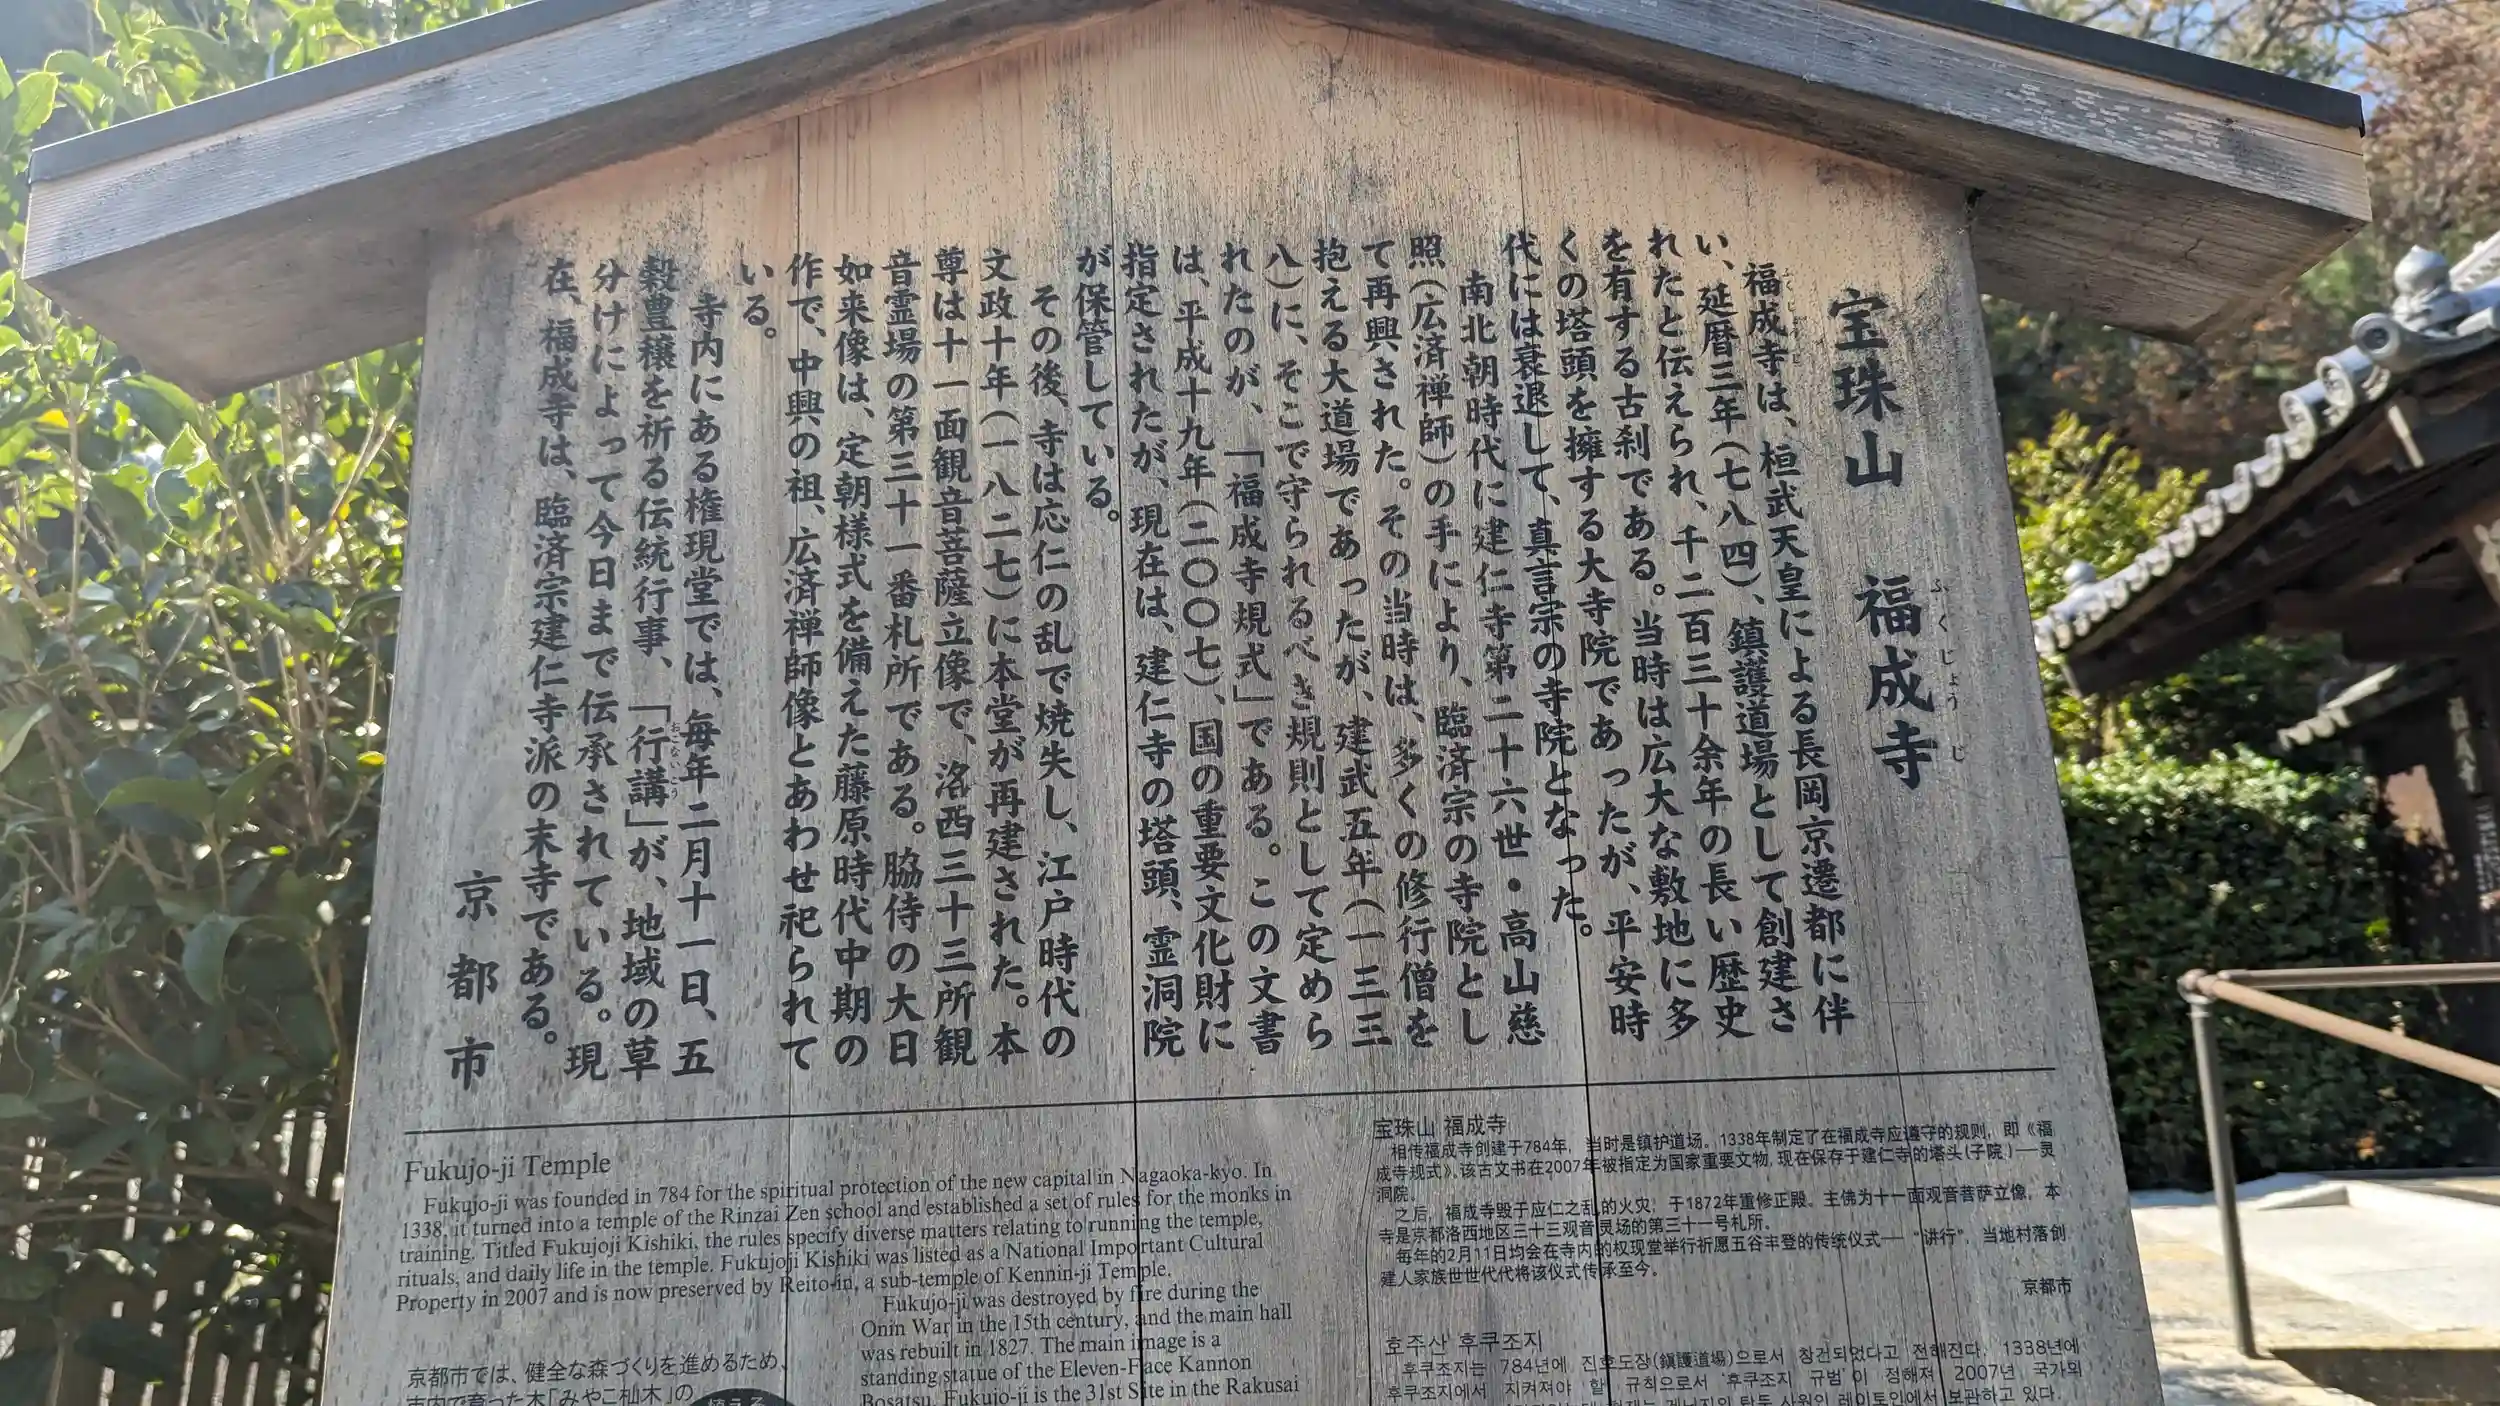 宝珠山 福成寺
ふくじょうじ
福成寺は、桓武天皇による長岡京遷都に伴
ふくじょうじ
い、延暦三年(七八四)、鎮護道場として創建さ
れたと伝えられ、千二百三十余年の長い歴史
を有する古刹である。当時は広大な敷地に多
くの塔頭を擁する大寺院であったが、平安時
代には衰退して、真言宗の寺院となった。
南北朝時代に建仁寺第二十六世・高山慈
照(広済禅師)の手により、臨済宗の寺院とし
て再興された。その当時は、多くの修行僧を
抱える大道場であったが、建武五年(一三三
八)に、そこで守られるべき規則として定めら
れたのが、「福成寺規式」である。この文書
は、平成十九年(二〇〇七)、国の重要文化財に
指定されたが、現在は、建仁寺の塔頭、霊洞院
が保管している。
その後、寺は応仁の乱で焼失し、江戸時代の
文政十年(一八二七)に本堂が再建された。本
尊は十一面観音菩薩立像で、洛西三十三所観
音霊場の第三十一番札所である。脇侍の大日
如来像は、定朝様式を備えた藤原時代中期の
作で、中興の祖、広済禅師像とあわせ祀られて
いる。
寺内にある権現堂では、毎年二月十一日、五
穀豊穣を祈る伝統行事、「行講」が、地域の草
おこないこう
分けによって今日まで伝承されている。現
在、福成寺は、臨済宗建仁寺派の末寺である。
京都市
Fukujo-ji Temple
Fukujo-ji was founded in 784 for the spiritual protection of the new capital in Nagaoka-kyo. In
1338, it turned into a temple of the Rinzai Zen school and established a set of rules for the monks in
training. Titled Fukujoji Kishiki, the rules specify diverse matters relating to running the temple,
rituals, and daily life in the temple. Fukujoji Kishiki was listed as a National Important Cultural
Property in 2007 and is now preserved by Reito-in, a sub-temple of Kennin-ji Temple.
Fukujo-ji was destroyed by fire during the
Onin War in the 15th century, and the main hall
was rebuilt in 1827. The main image is a
standing statue of the Eleven-Face Kannon
Bosatsu. Fukujo-ji is the 31st Site in the Rakusai
京都市では、健全な森づくりを進めるため、
市内で育った木「みやこ杣木」の
宝珠山 福成寺
相传福成寺创建于784年，当时是镇护道场。1338年制定了在福成寺应遵守的规则，即《福
成寺规式》。该古文书在2007年被指定为国家重要文物，现在保存于建仁寺的塔头(子院)—灵
洞院。
之后，福成寺毁于应仁之乱的火灾，于1872年重修正殿。主佛为十一面观音菩萨立像，本
寺是京都洛西地区三十三观音灵场的第三十一号札所。
每年的2月11日均会在寺内的权现堂举行祈愿五谷丰登的传统仪式—“讲行”，当地村落创
建人家族世世代代将该仪式传承至今。
京都市
호주산 후쿠조지
후쿠조지는 784년에 진호도장(鎭護道場)으로서 창건되었다고 전해진다. 1338년에
후쿠조지에서 지켜져야 할 규칙으로서 '후쿠조지 규범'이 정해져 2007년 국가의
사원인 레이토인에서 보관하고 있다.